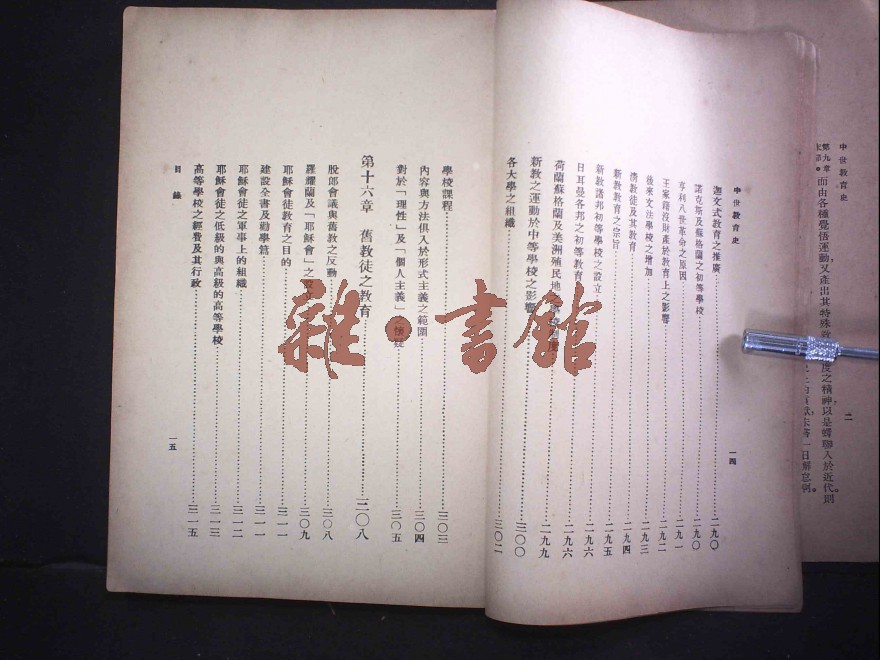 中世教育史
第九章
而由各種覺悟運動又產出其特殊
度之精神以是聯人於近代則
二
中世教育史
迦文式教育之推廣……二九〇
諾克斯及蘇格蘭之初等學校……二九〇
亨利八世革命之原因……二九一
王家籍沒財產於教育上之影響……二九二
後來文法學校之增加……二九三
清教徒及其教育……二九四
新教教育之宗旨……二九五
新教諸邦初等學校之設立……二九六
日耳曼各邦之初等教育……二九六
荷蘭蘇格蘭及美洲殖民地之……二九九
新教之運動於中等學校之影響……三〇〇
各大學之組織……三〇二
一四
學校課程……三〇三
內容與方法俱入於形式主義之範圍……三〇四
對於「理性」及「個人主義」之懷疑……三〇五
第十六章 舊教徒之教育……三〇八
脫郎會議與舊教之反動……三〇八
羅耀蘭及「耶穌會」之……三〇九
耶穌會徒教育之目的……三一一
建設全書及勸學篇……三一一
耶穌會徒之軍事上的組織……三一二
耶穌會徒之低級的與高級的高等學校……三一三
高等學校之經費及其行政……三一五
目錄
一五
雜·書館